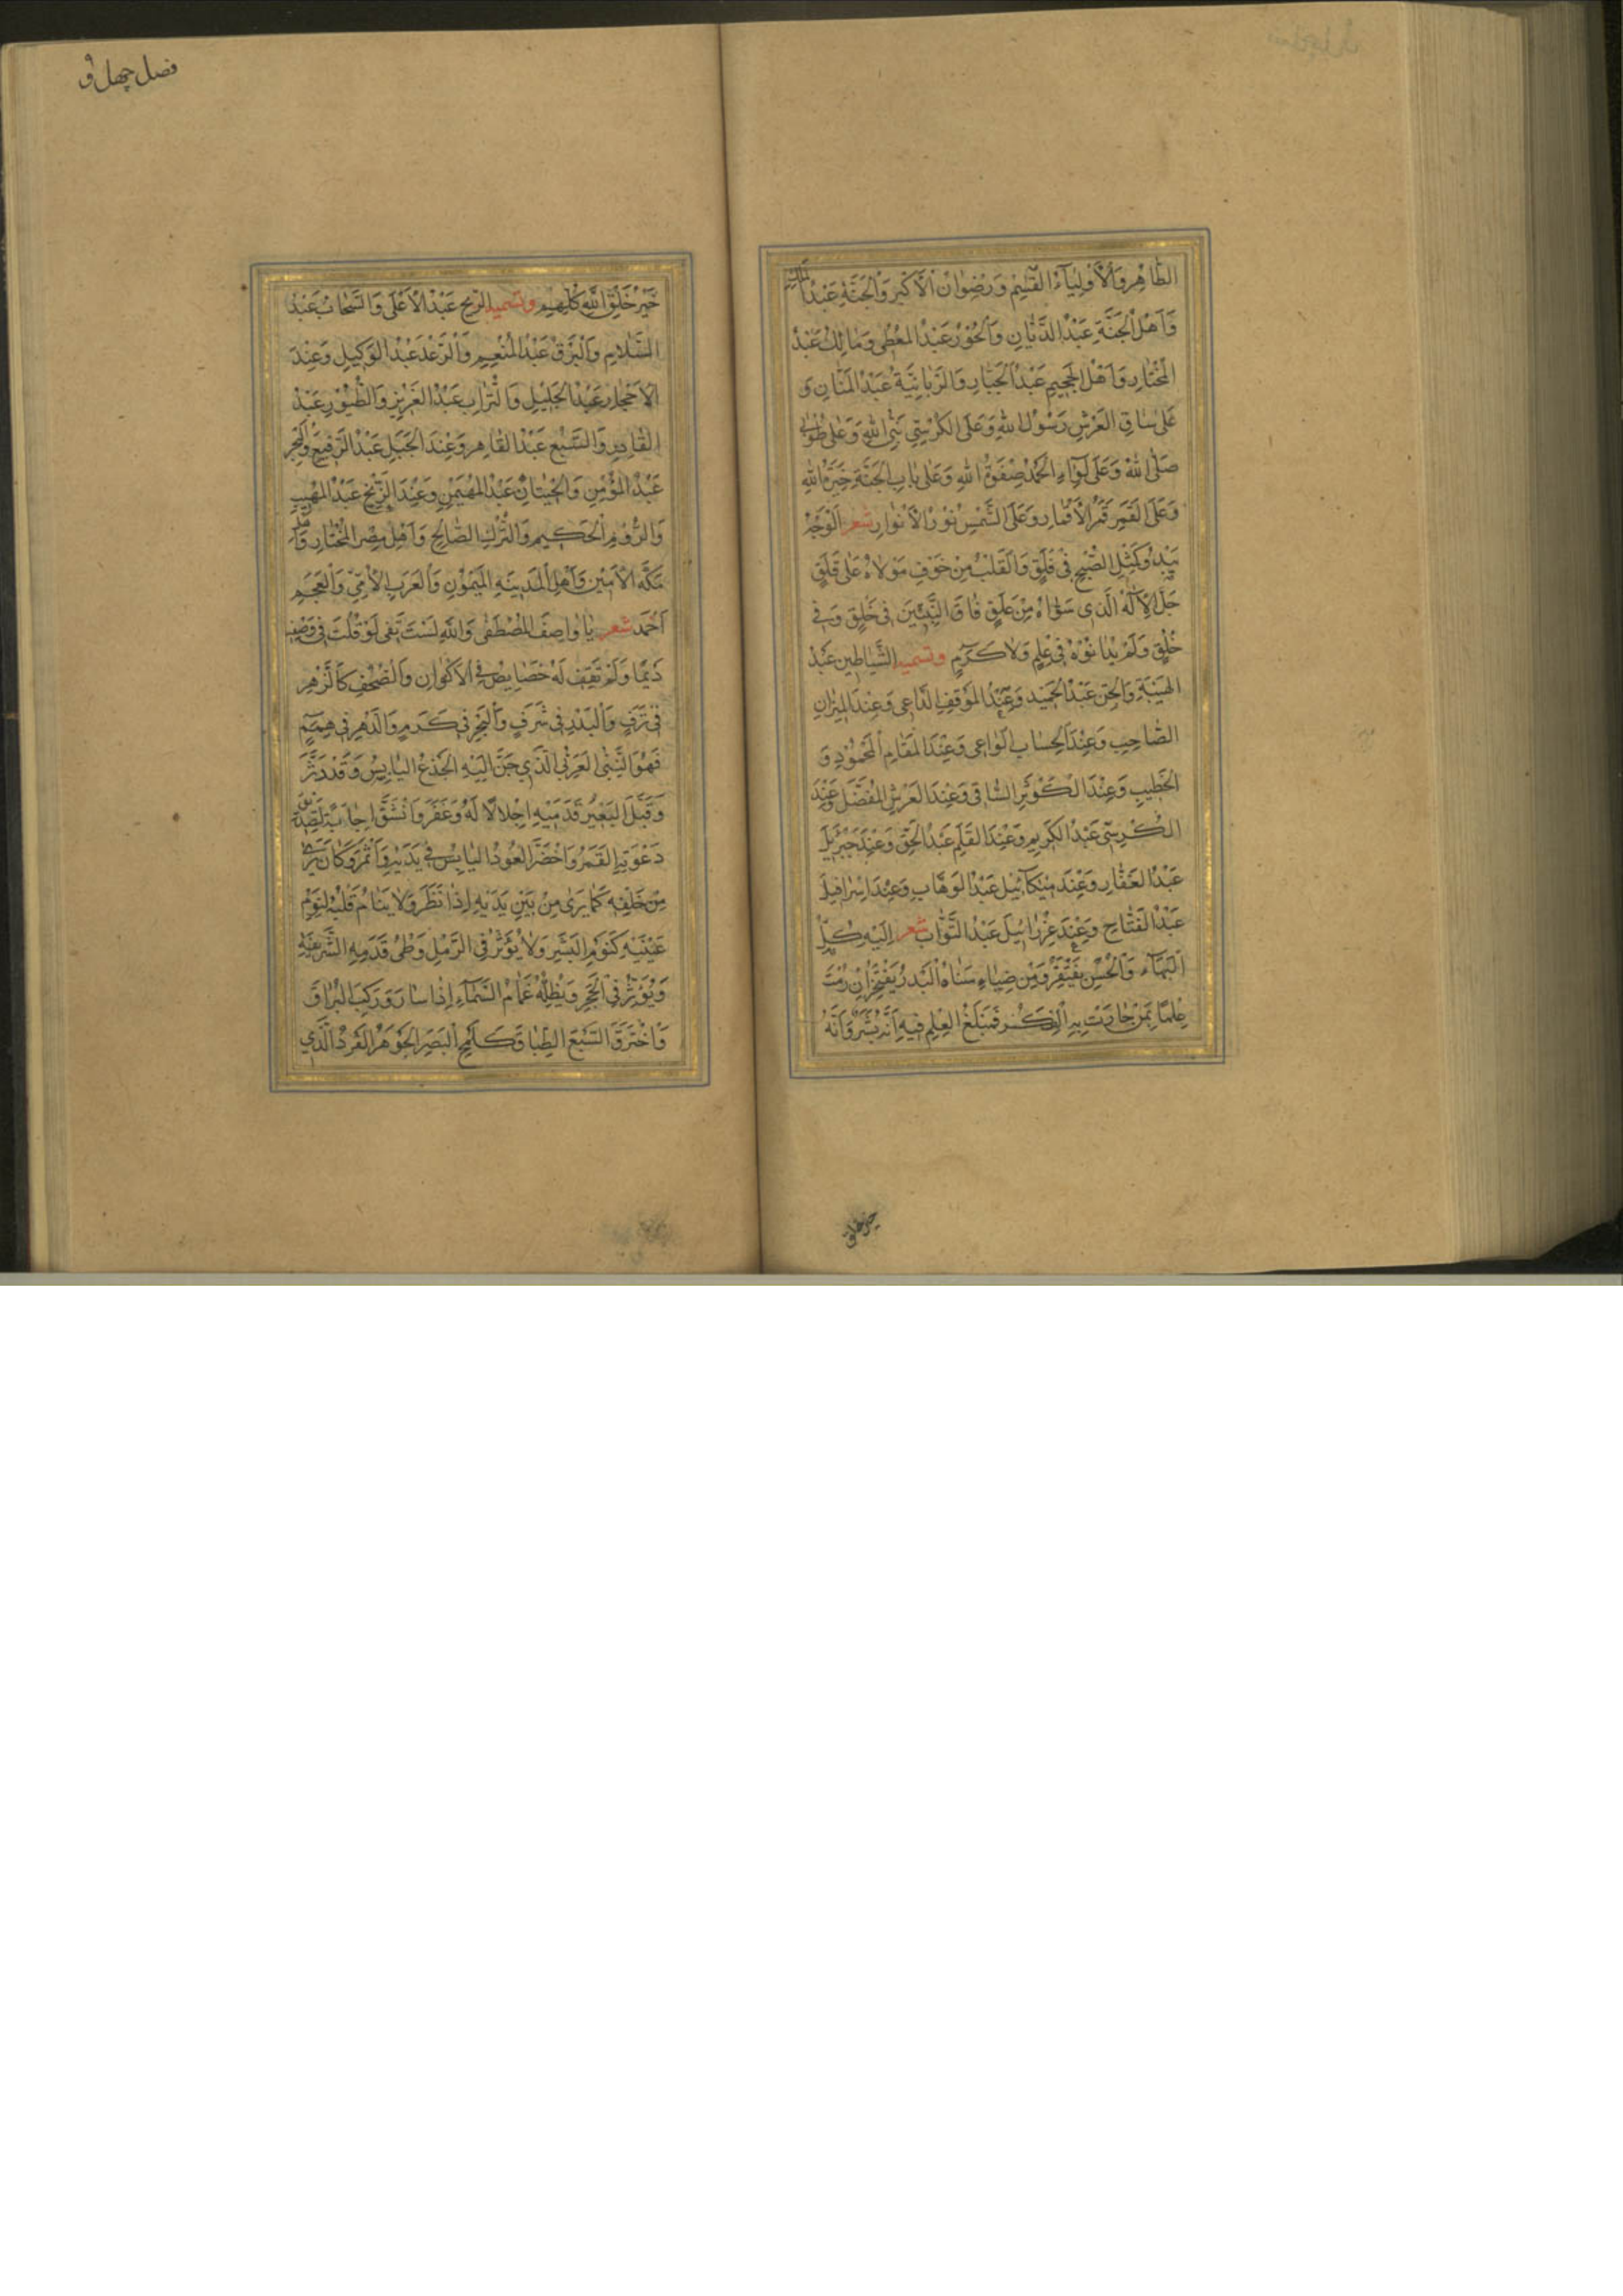 الطَّاهِرِ وَالْأَوْلِيَاءُ الْقَسِيْمِ وَرِضْوَانُ الْأَكْبَرِ وَالْجَنَّةُ عَبْدُ الْمَلِكِ
وَأَهْلُ الْجَنَّةِ عَبْدُ الدَّيَّانِ وَالْحُوْرُ عَبْدُ الْمُعْطِي وَمَالِكُ عَبْدُ
الْمُخْتَارِ وَأَهْلُ الْجَحِيمِ عَبْدُ الْجَبَّارِ وَالزَّبَانِيَّةُ عَبْدُ الْمَنَّانِ وَ
عَلَى سَاقِ الْعَرْشِ رَسُوْلُ اللهِ وَعَلَى الْكُرْسِيِّ نَبِيُّ اللهِ وَعَلَى طُوْبَى
صَلَّى اللهُ وَعَلَى لِوَاءِ الْحَمْدِ صِفْوَةُ اللهِ وَعَلَى بَابِ الْجَنَّةِ خِيَرَةُ اللهِ
وَعَلَى الْقَمَرِ قَمَرُ الْأَقْمَارِ وَعَلَى الشَّمْسِ نُوْرُ الْأَنْوَارِ شعر اَلْوَجْهُ
يَبْدُوْ كَمِثْلِ الصُّبْحِ فِي فَلَقٍ وَالْقَلْبُ مِنْ خَوْفِ مَوْلَاهُ عَلَى قَلَقٍ
جَلَّ الْإِلٰهُ الَّذِي سَوَّاهُ مِنْ عَلَقٍ فَاقَ النَّبِيِّيْنَ فِي خَلْقٍ وَفِي
خُلُقٍ وَلَمْ يُدَانُوْهُ فِي عِلْمٍ وَلَا كَرَمٍ وتسميه الشَّيَاطِيْنُ عَبْدُ
الْهَيْبَةِ وَالْجِنُّ عَبْدُ الْحَمِيْدِ وَعِنْدَ الْمَوْقِفِ الدَّاعِي وَعِنْدَ الْمِيْزَانِ
الصَّاحِبِ وَعِنْدَ الْحِسَابِ الْوَاعِي وَعِنْدَ الْمَقَامِ الْمَحْمُوْدِ وَ
الْخَطِيْبِ وَعِنْدَ الْكَوْثَرِ السَّاقِي وَعِنْدَ الْعَرْشِ الْمُفَضَّلِ وَعِنْدَ
الْكُرْسِيِّ عَبْدُ الْكَرِيْمِ وَعِنْدَ الْقَلَمِ عَبْدُ الْحَقِّ وَعِنْدَ جِبْرَئِيْلَ
عَبْدُ الْغَفَّارِ وَعِنْدَ مِيْكَائِيْلَ عَبْدُ الْوَهَّابِ وَعِنْدَ إِسْرَافِيْلَ
عَبْدُ الْفَتَّاحِ وَعِنْدَ عِزْرَائِيْلَ عَبْدُ التَّوَّابِ شعر اِلَيْهِ كُلُّ
الْبَهَاءِ وَالْحُسْنِ يَفْتَقِرُ وَمِنْ ضِيَاءِ سَنَاهُ الْبَدْرُ يَفْتَخِرُ اِنْ رُمْتَ
عِلْمًا بِمَنْ حَارَتْ بِهِ الْفِكَرُ فَمَبْلَغُ الْعِلْمِ فِيْهِ اَنَّهُ بَشَرٌ وَاَنَّهُ
خير خلق
فصل چهل و
خَيْرُ خَلْقِ اللهِ كُلِّهِمِ وتسميه الرِّيْحُ عَبْدُ الْأَعْلَى وَالسَّحَابُ عَبْدُ
السَّلَامِ وَالْبَرْقُ عَبْدُ الْمُنْعِمِ وَالرَّعْدُ عَبْدُ الْوَكِيْلِ وَعِنْدَ
الْأَحْجَارِ عَبْدُ الْجَلِيْلِ وَالتُّرَابِ عَبْدُ الْعَزِيْزِ وَالطُّيُوْرِ عَبْدُ
الْقَادِرِ وَالسَّبُعِ عَبْدُ الْقَاهِرِ وَعِنْدَ الْجَبَلِ عَبْدُ الرَّفِيْعِ وَالْبَحْرِ
عَبْدُ الْمُؤْمِنِ وَالْحِيْتَانِ عَبْدُ الْمُهَيْمِنِ وَعِنْدَ الزَّنْجِ عَبْدُ الْمُهِيْبِ
وَالرُّوْمِ الْحَكِيْمِ وَالتُّرْكِ الصَّالِحِ وَأَهْلِ مِصْرَ الْمُخْتَارِ وَأَهْلِ
مَكَّةَ الْأَمِيْنِ وَأَهْلِ الْمَدِيْنَةِ الْمَيْمُوْنِ وَالْعَرَبِ الْأُمِّيِّ وَالْعَجَمِ
اَحْمَدَ شعر يَا وَاصِفَ الْمُصْطَفَى وَاللهِ لَسْتَ تَفِي لَوْ قُلْتَ فِي وَصْفِهِ
دَيْمًا وَلَمْ تَقِفِ لَهُ خَصَايِصُ فِي الْأَكْوَانِ وَالصُّحُفِ كَالزَّهْرِ
فِي تَرَفٍ وَالْبَدْرِ فِي شَرَفٍ وَالْبَحْرِ فِي كَرَمٍ وَالدَّهْرِ فِي هِمَمٍ
فَهُوَ النَّبِيُّ الْعَرَبِيُّ الَّذِي حَنَّ اِلَيْهِ الْجِذْعُ الْيَابِسُ وَقَدْ دَثَّرَ
وَقَبَّلَ الْبَعِيْرُ قَدَمَيْهِ اِجْلَالًا لَهُ وَعَفَّرَ وَانْشَقَّ اِجَابَةً لِتَصْدِيْقِ
دَعْوَتِهِ الْقَمَرُ وَاخْضَرَّ الْعُوْدُ الْيَابِسُ فِي يَدَيْهِ وَاَثْمَرَ وَكَانَ يَرَى
مِنْ خَلْفِهِ كَمَا يَرَى مِنْ بَيْنِ يَدَيْهِ اِذَا نَظَرَ وَلَا يَنَامُ قَلْبُهُ لِنَوْمِ
عَيْنَيْهِ كَنَوْمِ الْبَشَرِ وَلَا يُؤَثِّرُ فِي الرَّمْلِ وَطْئُ قَدَمِهِ الشَّرِيْفَةِ
وَيُؤَثِّرُ فِي الْحَجَرِ وَيُظِلُّهُ غَمَامُ السَّمَاءِ اِذَا سَارَ وَرَكِبَ الْبُرَاقَ
وَاخْتَرَقَ السَّبْعَ الطِّبَاقَ كَلَمْحِ الْبَصَرِ الْجَوْهَرُ الْفَرْدُ الَّذِي